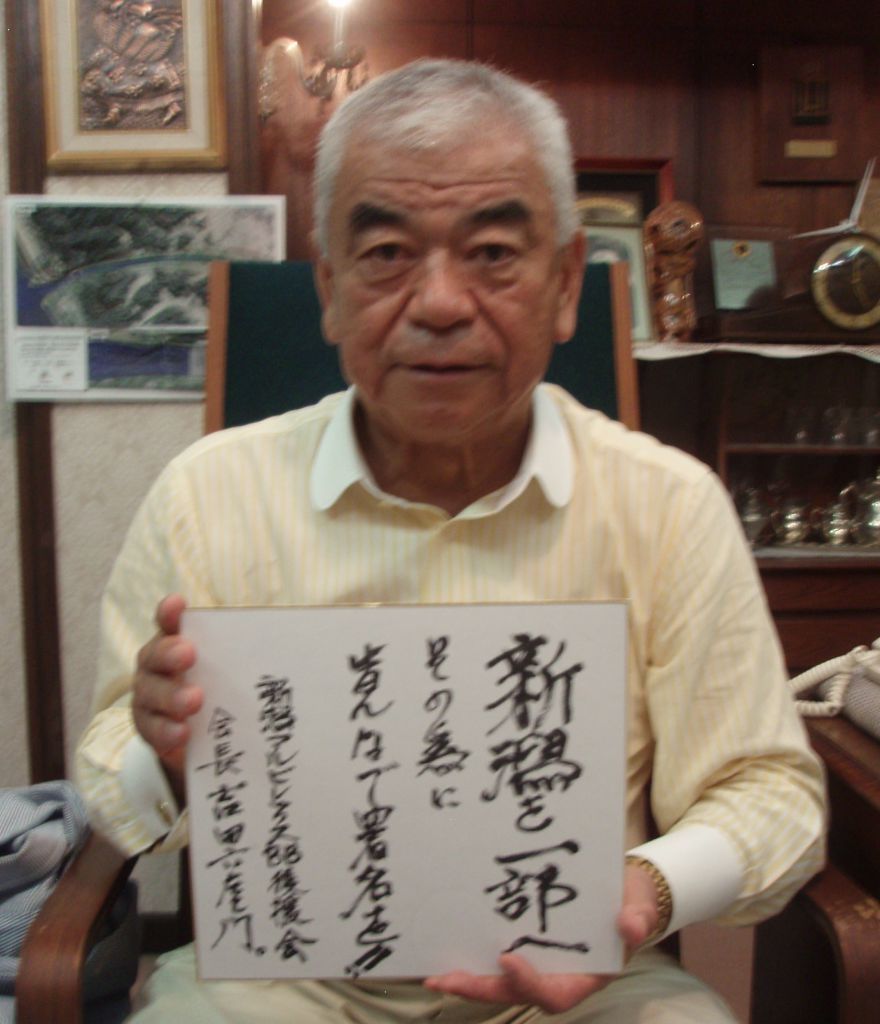 新潟を一部へ
その為に
皆んなで署名を!!
新潟アルビレックスBB後援会
会長 吉田